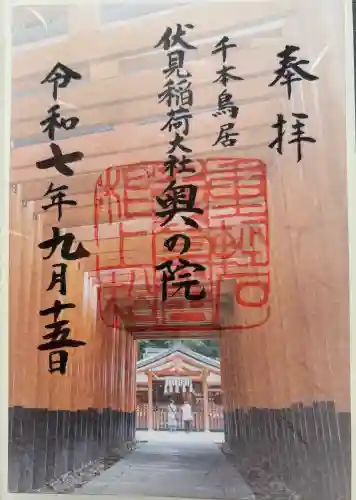 奉拝
千本鳥居
伏見稲荷大社
奥の院
令和七年九月十五日